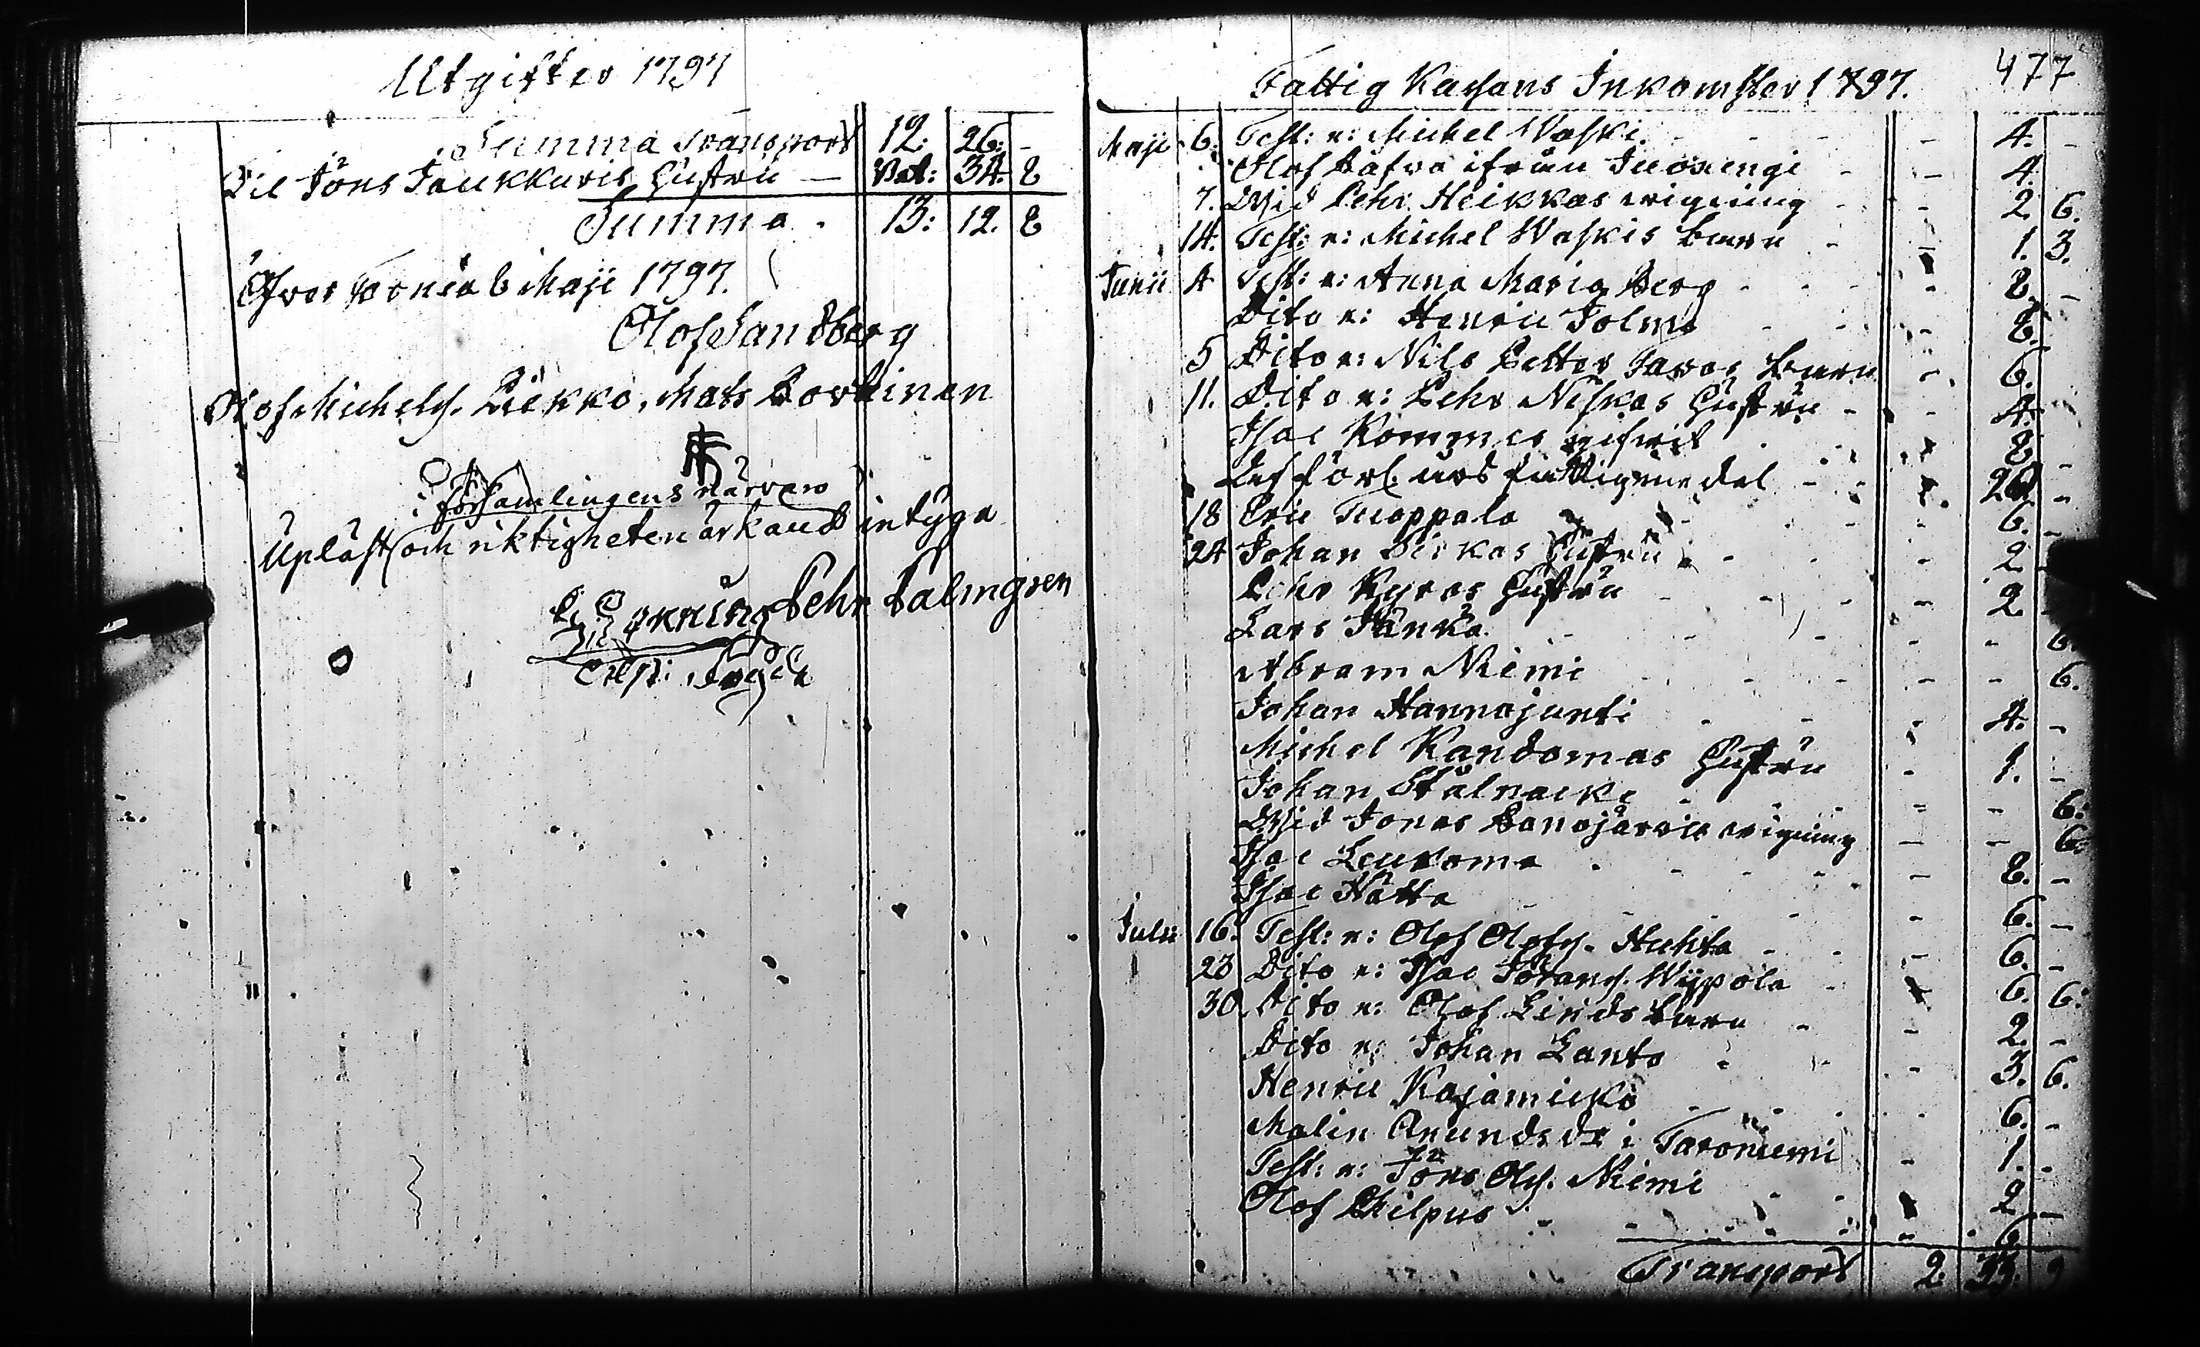 Utgifter 1797
Summa Transport 12: 26: -
Til Jöns Jaukkuris Hustru — 34. 8
Summa. 13: 12. 8
Öfver Torneå 6 Maji 1797.
Olof Sandberg
Olof Michels. Liekko, Mats Portinen
i församlingens närvaro
Upläst och riktigheten ärkänd intyga
Pehr Palmgren
477
Fattig Kassans Inkomster 1797.
Maji 6. Test: e: Michel Waski - 4. -
Olof Lafva ifrån Juoxengi - 4.
7. Wid Pehr Heikkas wigning - 2. 6.
14. Test: e: Michel Waskis barn - 1. 3.
Junii 4 Test: e: Anna Maria Berg - 8. -
Dito e: Henric Jolma - 8.
5 Dito e: Nils Petter Javas barn - 6.
11. Dito e: Pehr Niskas Hustru - 4.
Isac Kommes - 8 -
fattigmedel - 24. -
18 Eric Tuoppala - 6. -
24 Johan Hustru - 2
Pehr Kyrös Hustru - 2
Lars Jänkä - - 6.
Abram Niemi - - 6.
Johan Hannojunti - 4. -
Michel Kandomas Hustru - 1. -
Johan Stålnacke - - 6.
Wid Jonas wigning - - 6.
Isac Leukoma - 8. -
Isac Nätta - 6. -
Julii 16. Test: e: Olof Olofs. Huhta - 6. -
23 Dito e: Isac Johans. Wyöpöla - 6. 6.
30. Dito e: Olof Linds barn - 2. -
Dito e: Johan Lanto - 3. 6.
Henric Kojamicko - 6. -
Malin i Taroniemi - 1. -
Test: e: Jöns Ols. Niemi - 2 -
Olof Philpus - 6
Transport 2. 33. 9